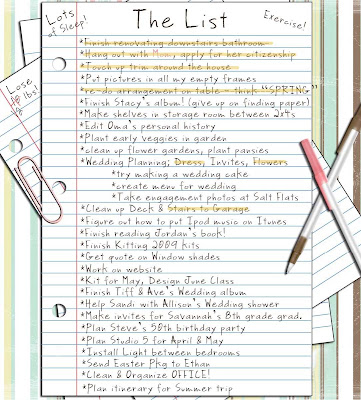 Lots of Sleep!
The List
Exercise!
Lose
lbs!
*Finish renovating downstairs bathroom
*Hang out with Mimi, apply for her citizenship
*Touch up trim around the house
*Put pictures in all my empty frames
*re-do arrangement on table - think "SPRING"
*Finish Stacy's album! (give up on finding paper)
*Make shelves in storage room between 2x4s
*Edit Oma's personal history
*Plant early veggies in garden
*clean up flower gardens, plant pansies
*Wedding Planning; Dress, Invites, Flowers
*try making a wedding cake
*create menu for wedding
*Take engagement photos at Salt Flats
*Clean up Deck & Stairs to Garage
*Figure out how to put Ipod music on Itunes
*Finish reading Jordan's book!
*Finish Kitting 2009 kits
*Get quote on Window shades
*Work on website
*Kit for May, Design June Class
*Finish Tiff & Ave's Wedding album
*Help Sandi with Allison's Wedding shower
*Make invites for Savannah's 8th grade grad.
*Plan Steve's 50th birthday party
*Plan Studio 5 for April & May
*Install Light between bedrooms
*Send Easter Pkg to Ethan
*Clean & Organize OFFICE!
*Plan itinerary for Summer trip